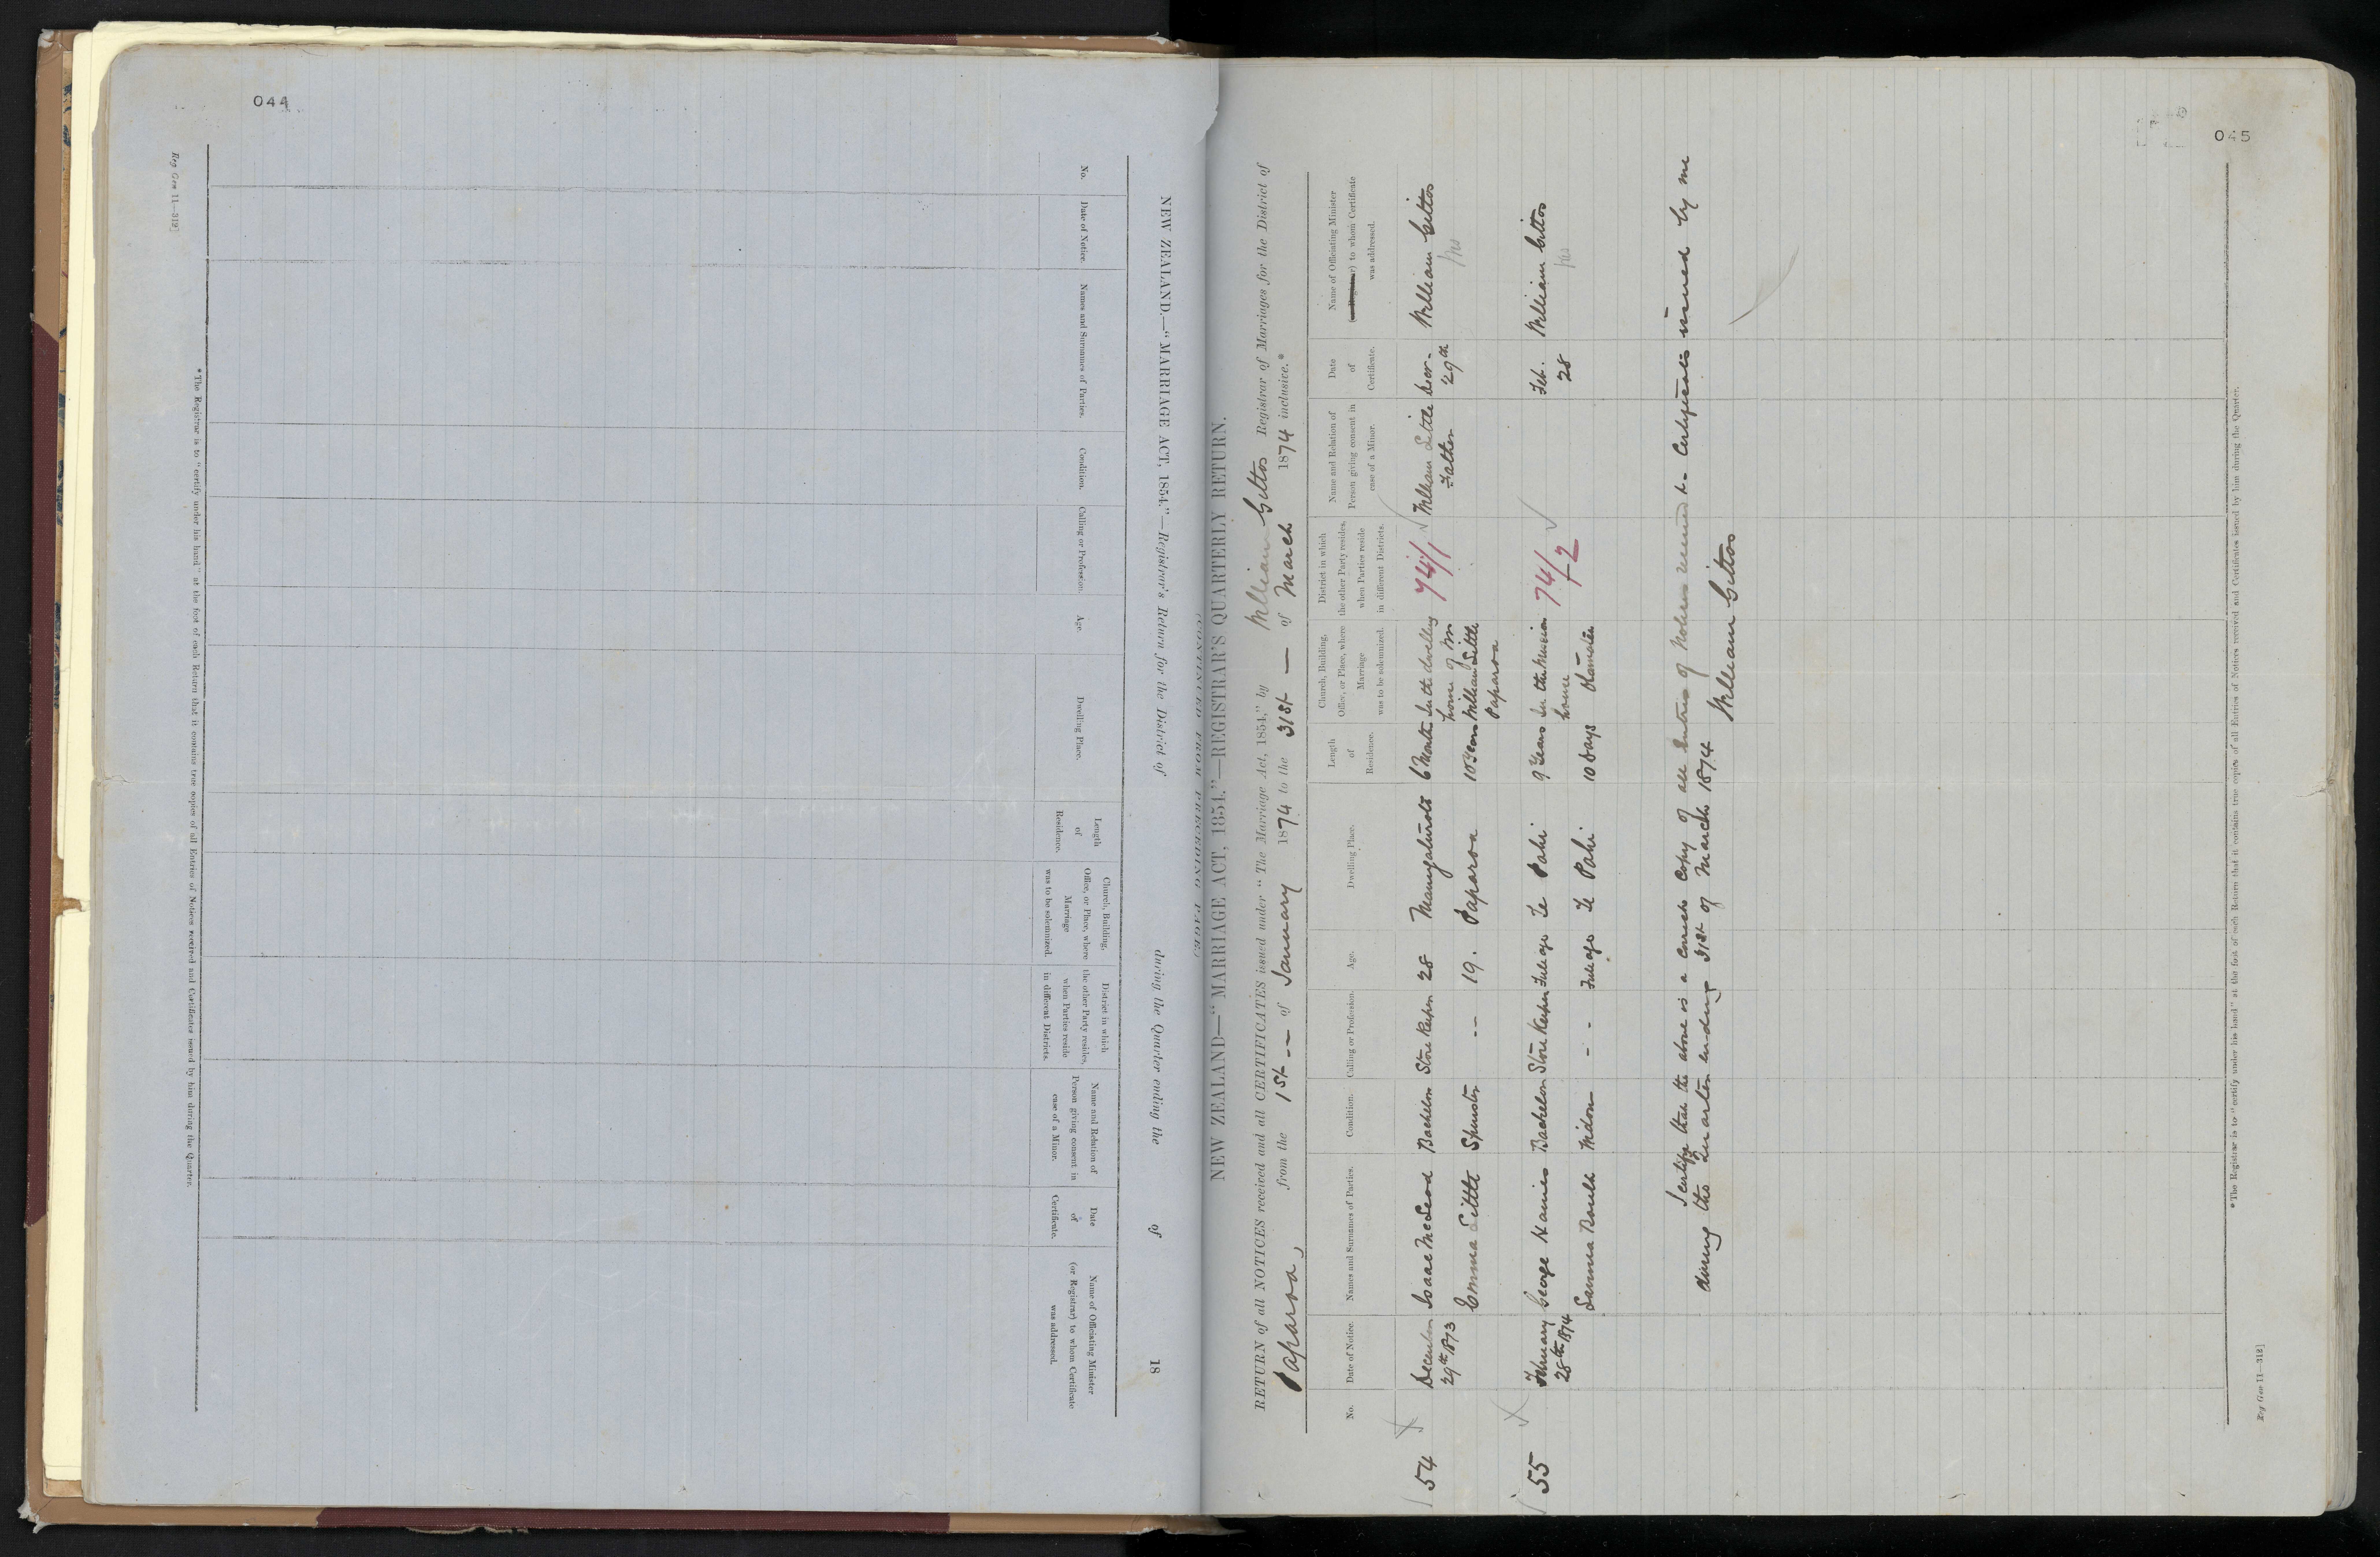 044
Reg Gen 11—312]
NEW ZEALAND.—"MARRIAGE ACT, 1854."—Registrar's Return for the District of during the Quarter ending the of 18
No.
Date of Notice.
Names and Surnames of Parties.
Condition.
Calling or Profession.
Age.
Dwelling Place.
Length of Residence.
Church, Building, Office, or Place, where Marriage was to be solemnized.
District in which the other Party resides, when Parties reside in different Districts.
Name and Relation of Person giving consent in case of a Minor.
Date of Certificate.
Name of Officiating Minister (or Registrar) to whom Certificate was addressed.
* The Registrar is to "certify under his hand" at the foot of each Return that it contains true copies of all Entries of Notices received and Certificates issued by him during the Quarter.
(CONTINUED FROM PRECEDING PAGE)
045
NEW ZEALAND—"MARRIAGE ACT, 1854."—REGISTRAR'S QUARTERLY RETURN.
RETURN of all NOTICES received and all CERTIFICATES issued under "The Marriage Act, 1854," by William Gittos Registrar of Marriages for the District of
Paparoa, from the 1st — of January 1874 to the 31st — of March 1874 inclusive.*
No.
Date of Notice.
Names and Surnames of Parties.
Condition.
Calling or Profession.
Age.
Dwelling Place.
Length of Residence.
Church, Building, Office, or Place, where Marriage was to be solemnized.
District in which the other Party resides, when Parties reside in different Districts.
Name and Relation of Person giving consent in case of a Minor.
Date of Certificate.
Name of Officiating Minister (or Registrar) to whom Certificate was addressed.
54 December Isaac McLeod Bachelor Store Keeper 28 Mangaturoto 6 Months In the dwelling 74/1 William Little Decr. William Gittos
29th 1873 house of Mr Father 29th
Emma Little Spinster -- 19. Paparoa 10 Years William Little
Paparoa
55 February George Haines Bachelor Store Keeper Full age Te Pahi 9 Years In the Mission 74/2 Feb. William Gittos
28th 1874 house 28
Widow - - Full age Te Pahi 10 days Otamatea
I certify that the above is a correct Copy of all Entries of Notices received & Certificates issued by me
during the Quarter ending 31st of March 1874
William Gittos
* The Registrar is to "certify under his hand" at the foot of each Return that it contains true copies of all Entries of Notices received and Certificates issued by him during the Quarter.
Reg Gen 11—312]